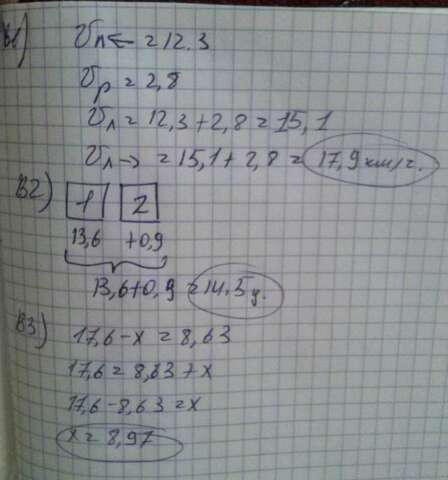 В1) Vл← = 12.3
Vр = 2,8
Vл = 12,3 + 2,8 = 15,1
Vл→ = 15,1 + 2,8 = 17,9 км/ч.
В2) 1 2
13,6 +0,9
13,6+0,9 = 14.5 ц.
В3) 17,6 - x = 8,63
17,6 = 8,63 + x
17,6 - 8,63 = x
x = 8,97